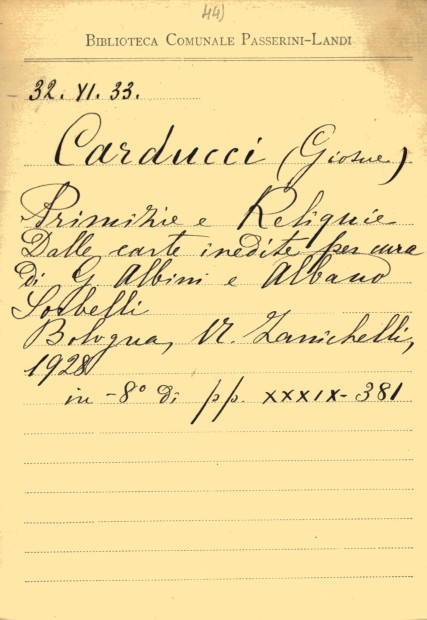 44)
BIBLIOTECA COMUNALE PASSERINI-LANDI
32. VI. 33.
Carducci (Giosue)
Primizie e Reliquie
Dalle carte inedite per cura
di G. Albini e Albano
Sorbelli
Bologna, N. Zanichelli,
1928
in -8° di pp. XXXIX-381